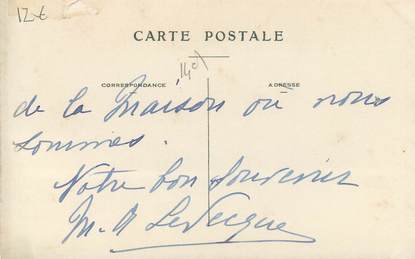 12€
CARTE POSTALE
140
CORRESPONDANCE ADRESSE
de la maison où nous
sommes.
Notre bon souvenir
M. A